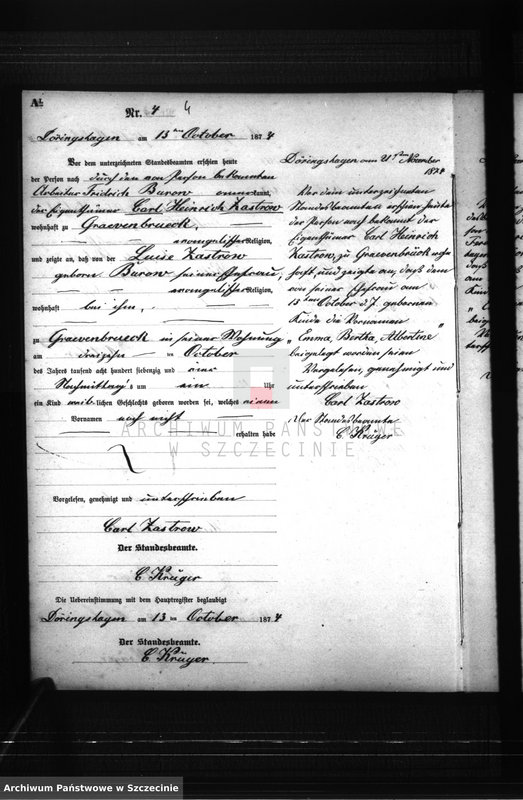 A1.
Nr. 4 4
Döringshagen am 13ten October 1874
Vor dem unterzeichneten Standesbeamten erschien heute
der Person nach durch den von Person bekannten
Arbeiter Friedrich Burow anerkannt,
der Eigenthümer Carl Heinrich Zastrow
wohnhaft zu Graevenbrueck,
evangelischer Religion,
und zeigte an, daß von der Luise Zastrow
geborn Burow seiner Ehefrau,
evangelischer Religion,
wohnhaft bei ihm,
zu Graevenbrueck in seiner Wohnung
am dreizehn ten October
des Jahres tausend acht hundert siebenzig und vier
Nachmittag's um ein Uhr
ein Kind weiblichen Geschlechts geboren worden sei, welches einen
Vornamen noch nicht
erhalten habe
Vorgelesen, genehmigt und unterschrieben
Carl Zastrow
Der Standesbeamte.
C Krüger
Die Uebereinstimmung mit dem Hauptregister beglaubigt
Döringshagen am 13 ten October 1874
Der Standesbeamte.
C Krüger.
Döringshagen am 21sten November
1874
Vor dem unterzeichneten
Standesbeamten erschien heute
der Person nach bekannt der
Eigenthümer Carl Heinrich
Zastrow, zu Graevenbrück wohn
haft, und zeigte an, daß dem
von seiner Ehefrau am
13ten October d.J. gebornen
Kinde die Vornamen
„Emma, Bertha, Albertine"
beigelegt worden seien
Vorgelesen, genehmigt und
unterschrieben
Carl Zastrow
Der Standesbeamte
C Krüger
ARCHIWUM PAŃSTWOWE
W SZCZECINIE
Archiwum Państwowe w Szczecinie